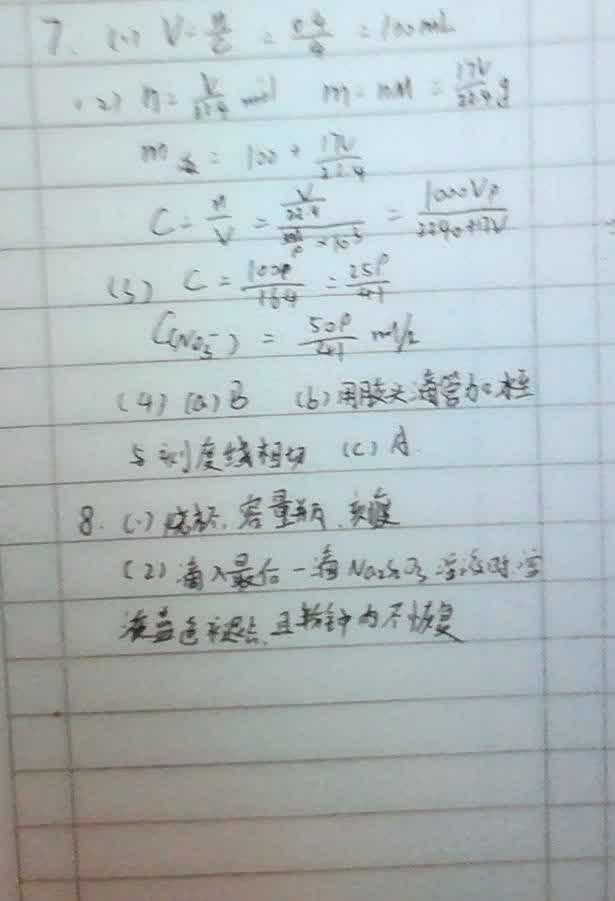 7. (1) V = n/c = 0.4/4 = 100mL
(2) n = V/22.4 mol m = nM = 17V/22.4 g
m = 100 + 17V/22.4
C = n/V = = 1000Vρ/2240+17V
(3) C = 100ρ/164 = 25ρ/41
C(NO₃⁻) = 50ρ/41 mol/L
(4) (a) B (b) 用胶头滴管加水至
与刻度线相切 (c) A.
8. (1) 烧杯、容量瓶、
(2) 滴入最后一滴 Na₂S₂O₃ 溶液时,溶
液蓝色褪去,且半分钟内不恢复